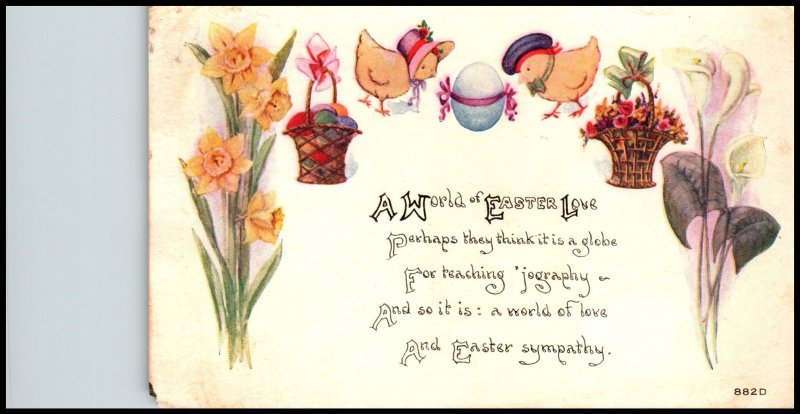 A World of Easter Love
Perhaps they think it is a globe
For teaching 'jography ~
And so it is: a world of love
And Easter sympathy.
882D